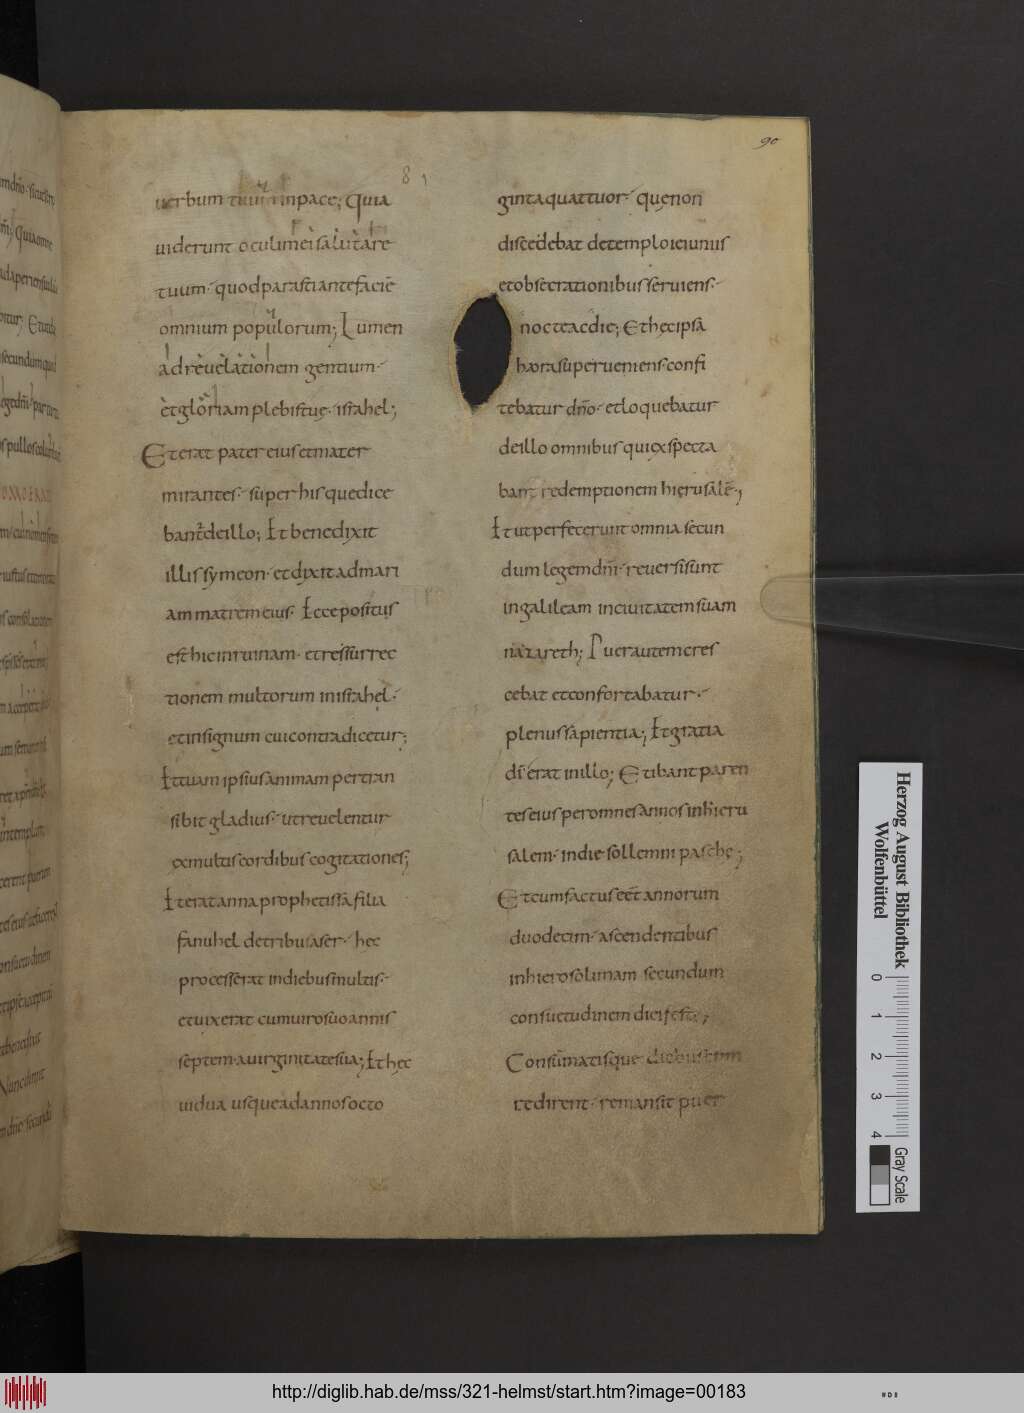 90
81
uerbum tuum inpace; Quia
uiderunt oculimei salutare
tuum· quodparastiantefaciē
omnium populorum; Lumen
adreuelationem gentium·
etgloriam plebistuę· israhel;
Eterat pater eius etmater
mirantes· super his quedice
banť deillo; Et benedixit
illis symeon· etdixitadmari
am matrem eius· Ecce positus
est hic inruinam· etresurrec
tionem multorum inisrahel·
etinsignum cuicontradicetur;
Ettuam ipsius animam pertran
sibit gladius· utreuelentur
exmultis cordibus cogitationes;
Eterat anna prophetissa filia
fanuhel detribu aser· hec
processerat indiebus multis·
etuixerat cumuiro suo annis
septem· auirginitate sua; Et hec
uidua usque ad annos octo
ginta quattuor· quęnon
discedebat detemplo ieiuniis
etobsecrationibus seruiens·
nocte acdie; Ethęc ipsa
hora superueniens· confi
tebatur dn̄o· etloquebatur
deillo omnibus qui expecta
bant redemptionem hierusalē·;
Et utperfecerunt omnia secun
dum legem dn̄i· reuersi sunt
ingalileam inciuitatem suam
nazareth; Puer autem cres
cebat etconfortabatur·
plenus sapientia·; Et gratia
dī erat inillo; Et ibant paren
tes eius per omnes annos inhieru
salem· indie sollemni pasche·;
Etcumfactus eēt annorum
duodecim· ascendentibus
inhierosolimam secundum
consuetudinem diei festi·;
Consūmatisque diebus cum
redirent· remansit puer
Herzog August Bibliothek
Wolfenbüttel
0 1 2 3 4
Gray Scale
http://diglib.hab.de/mss/321-helmst/start.htm?image=00183